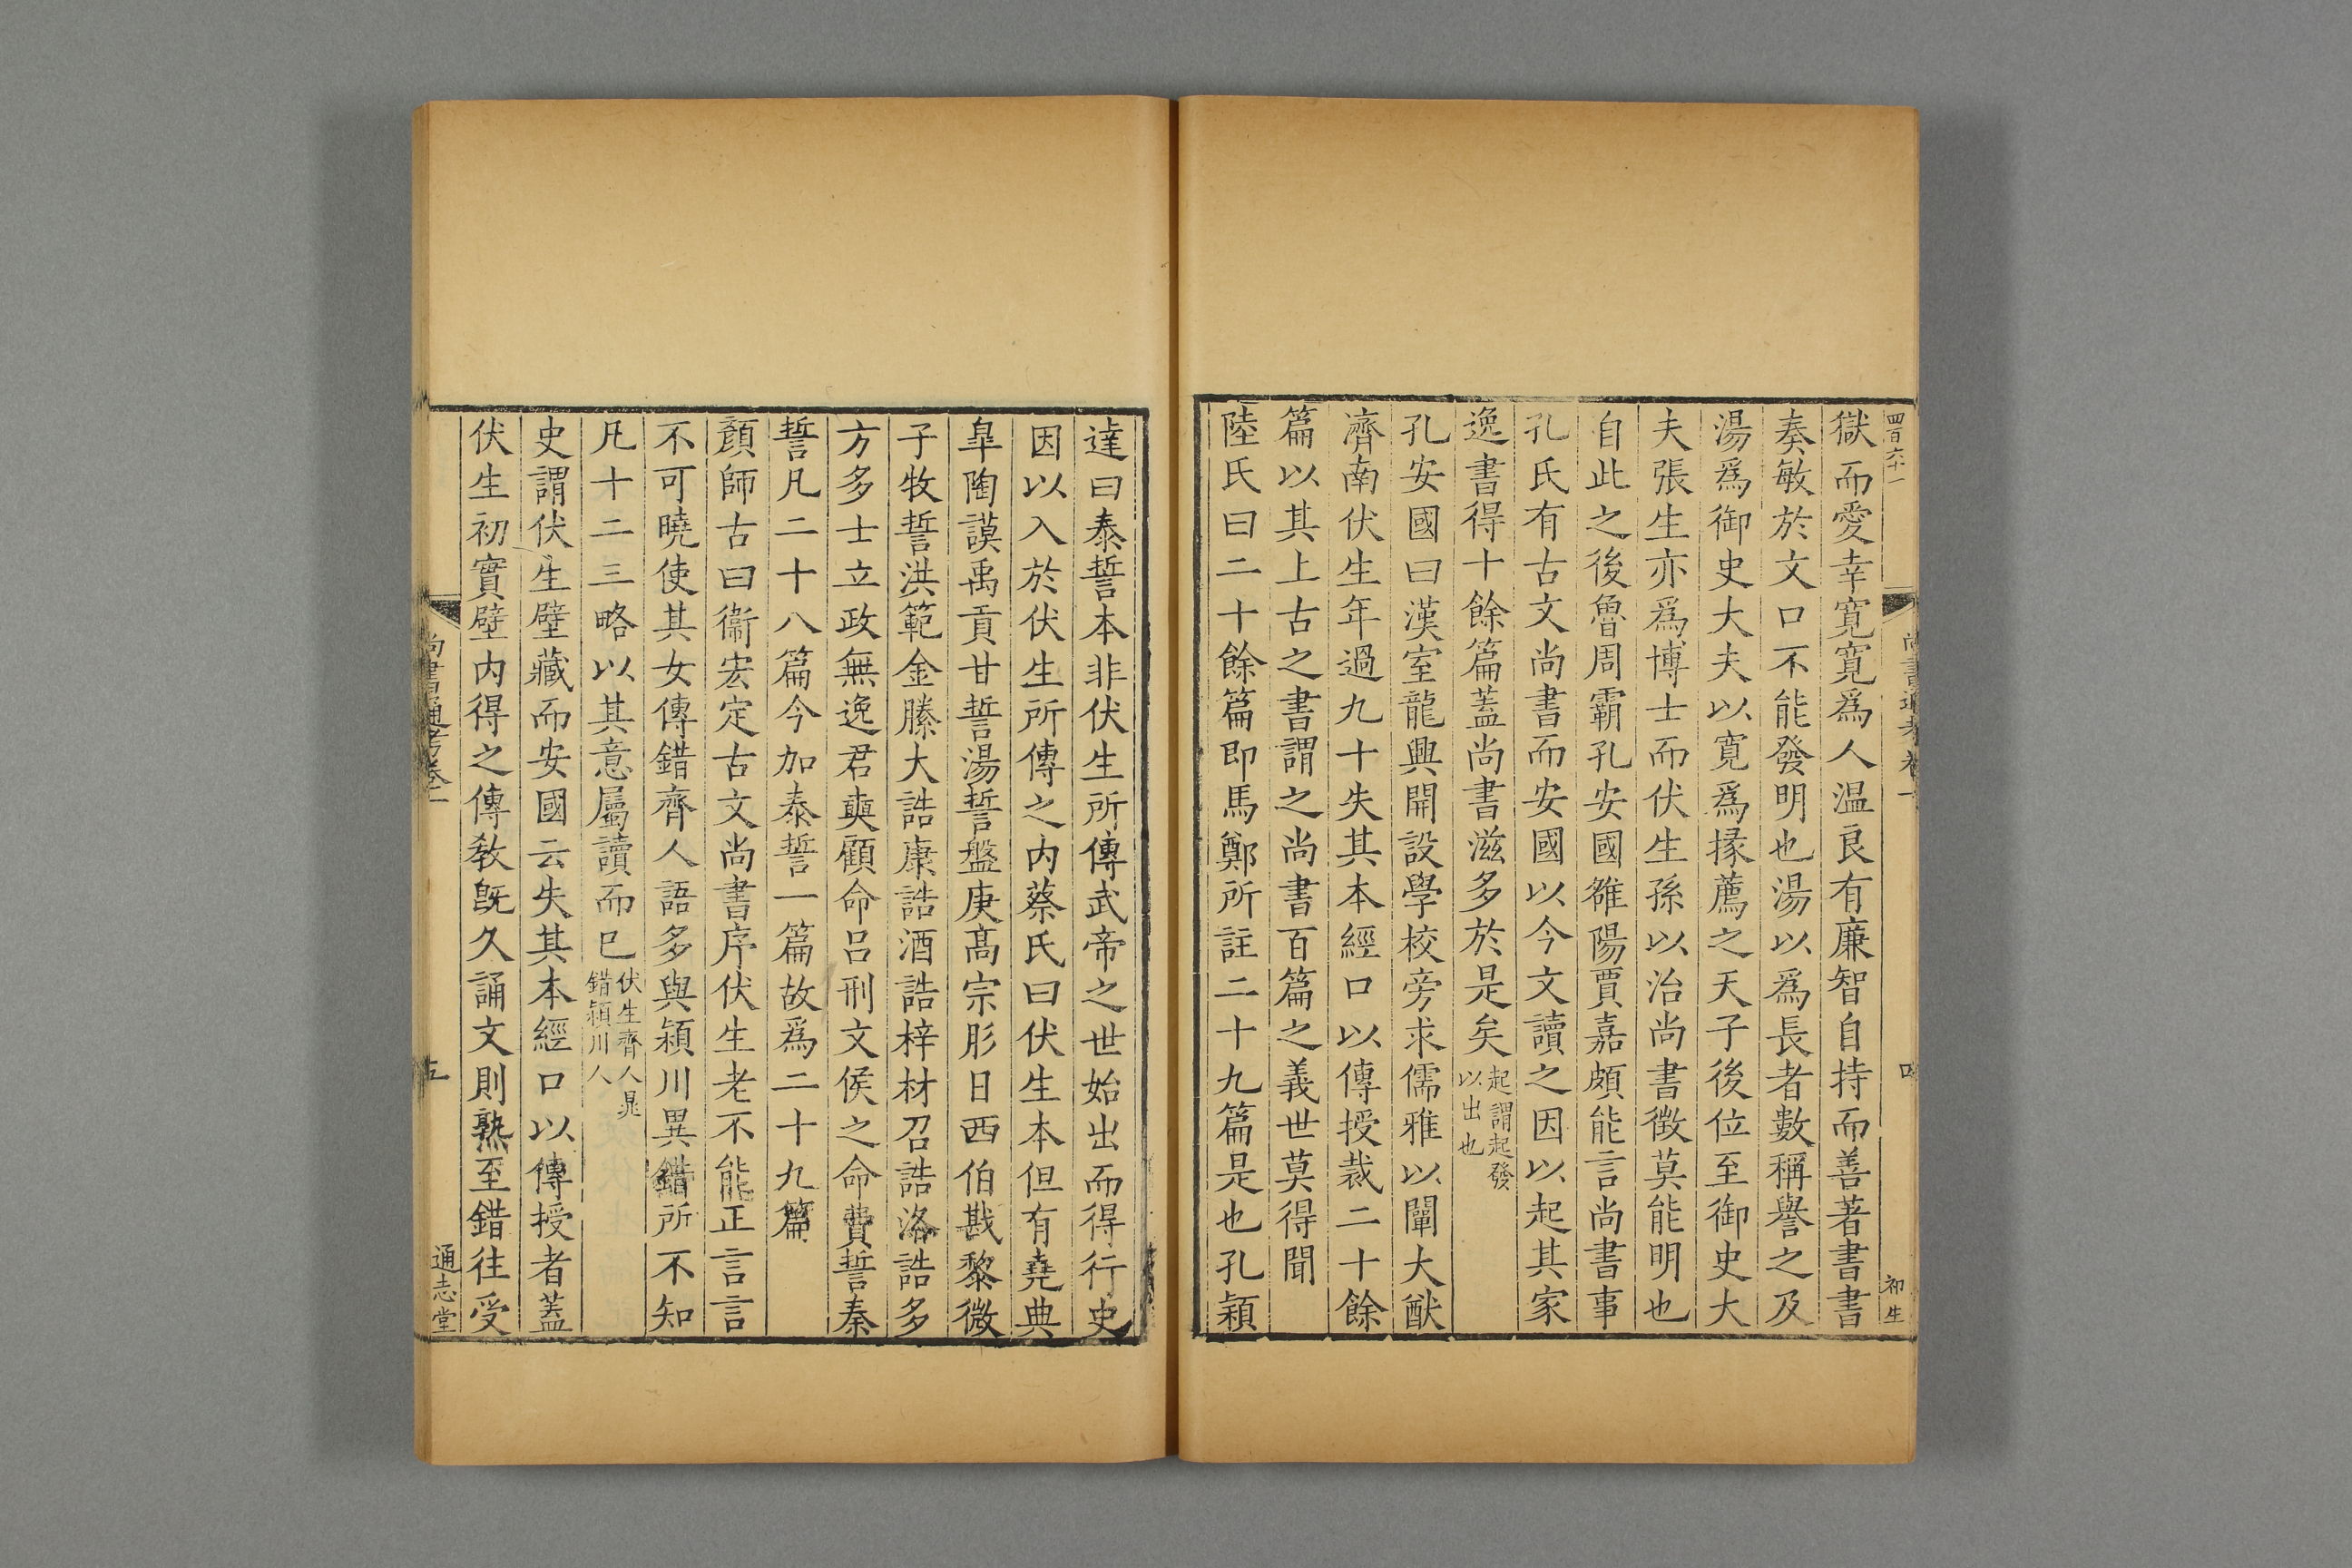 四百六十一
尚書通考卷一
初生
獄而愛幸寛寛爲人温良有廉智自持而善著書書
奏敏於文口不能發明也湯以爲長者數稱譽之及
湯爲御史大夫以寛爲掾薦之天子後位至御史大
夫張生亦爲博士而伏生孫以治尚書徴莫能明也
自此之後魯周霸孔安國雒陽賈嘉頗能言尚書事
孔氏有古文尚書而安國以今文讀之因以起其家
逸書得十餘篇蓋尚書滋多於是矣起謂起發
以出也
孔安國曰漢室龍興開設學校旁求儒雅以闡大猷
濟南伏生年過九十失其本經口以傳授裁二十餘
篇以其上古之書謂之尚書百篇之義世莫得聞
陸氏曰二十餘篇即馬鄭所註二十九篇是也孔穎
達曰泰誓本非伏生所傳武帝之世始出而得行史
因以入於伏生所傳之内蔡氏曰伏生本但有堯典
臯陶謨禹貢甘誓湯誓盤庚髙宗肜日西伯戡黎微
子牧誓洪範金縢大誥康誥酒誥梓材召誥洛誥多
方多士立政無逸君奭顧命吕刑文侯之命費誓秦
誓凡二十八篇今加泰誓一篇故爲二十九篇
顔師古曰衞宏定古文尚書序伏生老不能正言言
不可曉使其女傳錯齊人語多與潁川異錯所不知
凡十二三略以其意屬讀而已伏生齊人晁
錯潁川人
史謂伏生壁藏而安國云失其本經口以傳授者蓋
伏生初實壁内得之傳敎旣久誦文則熟至錯往受
尚書通考卷一
五
通志堂